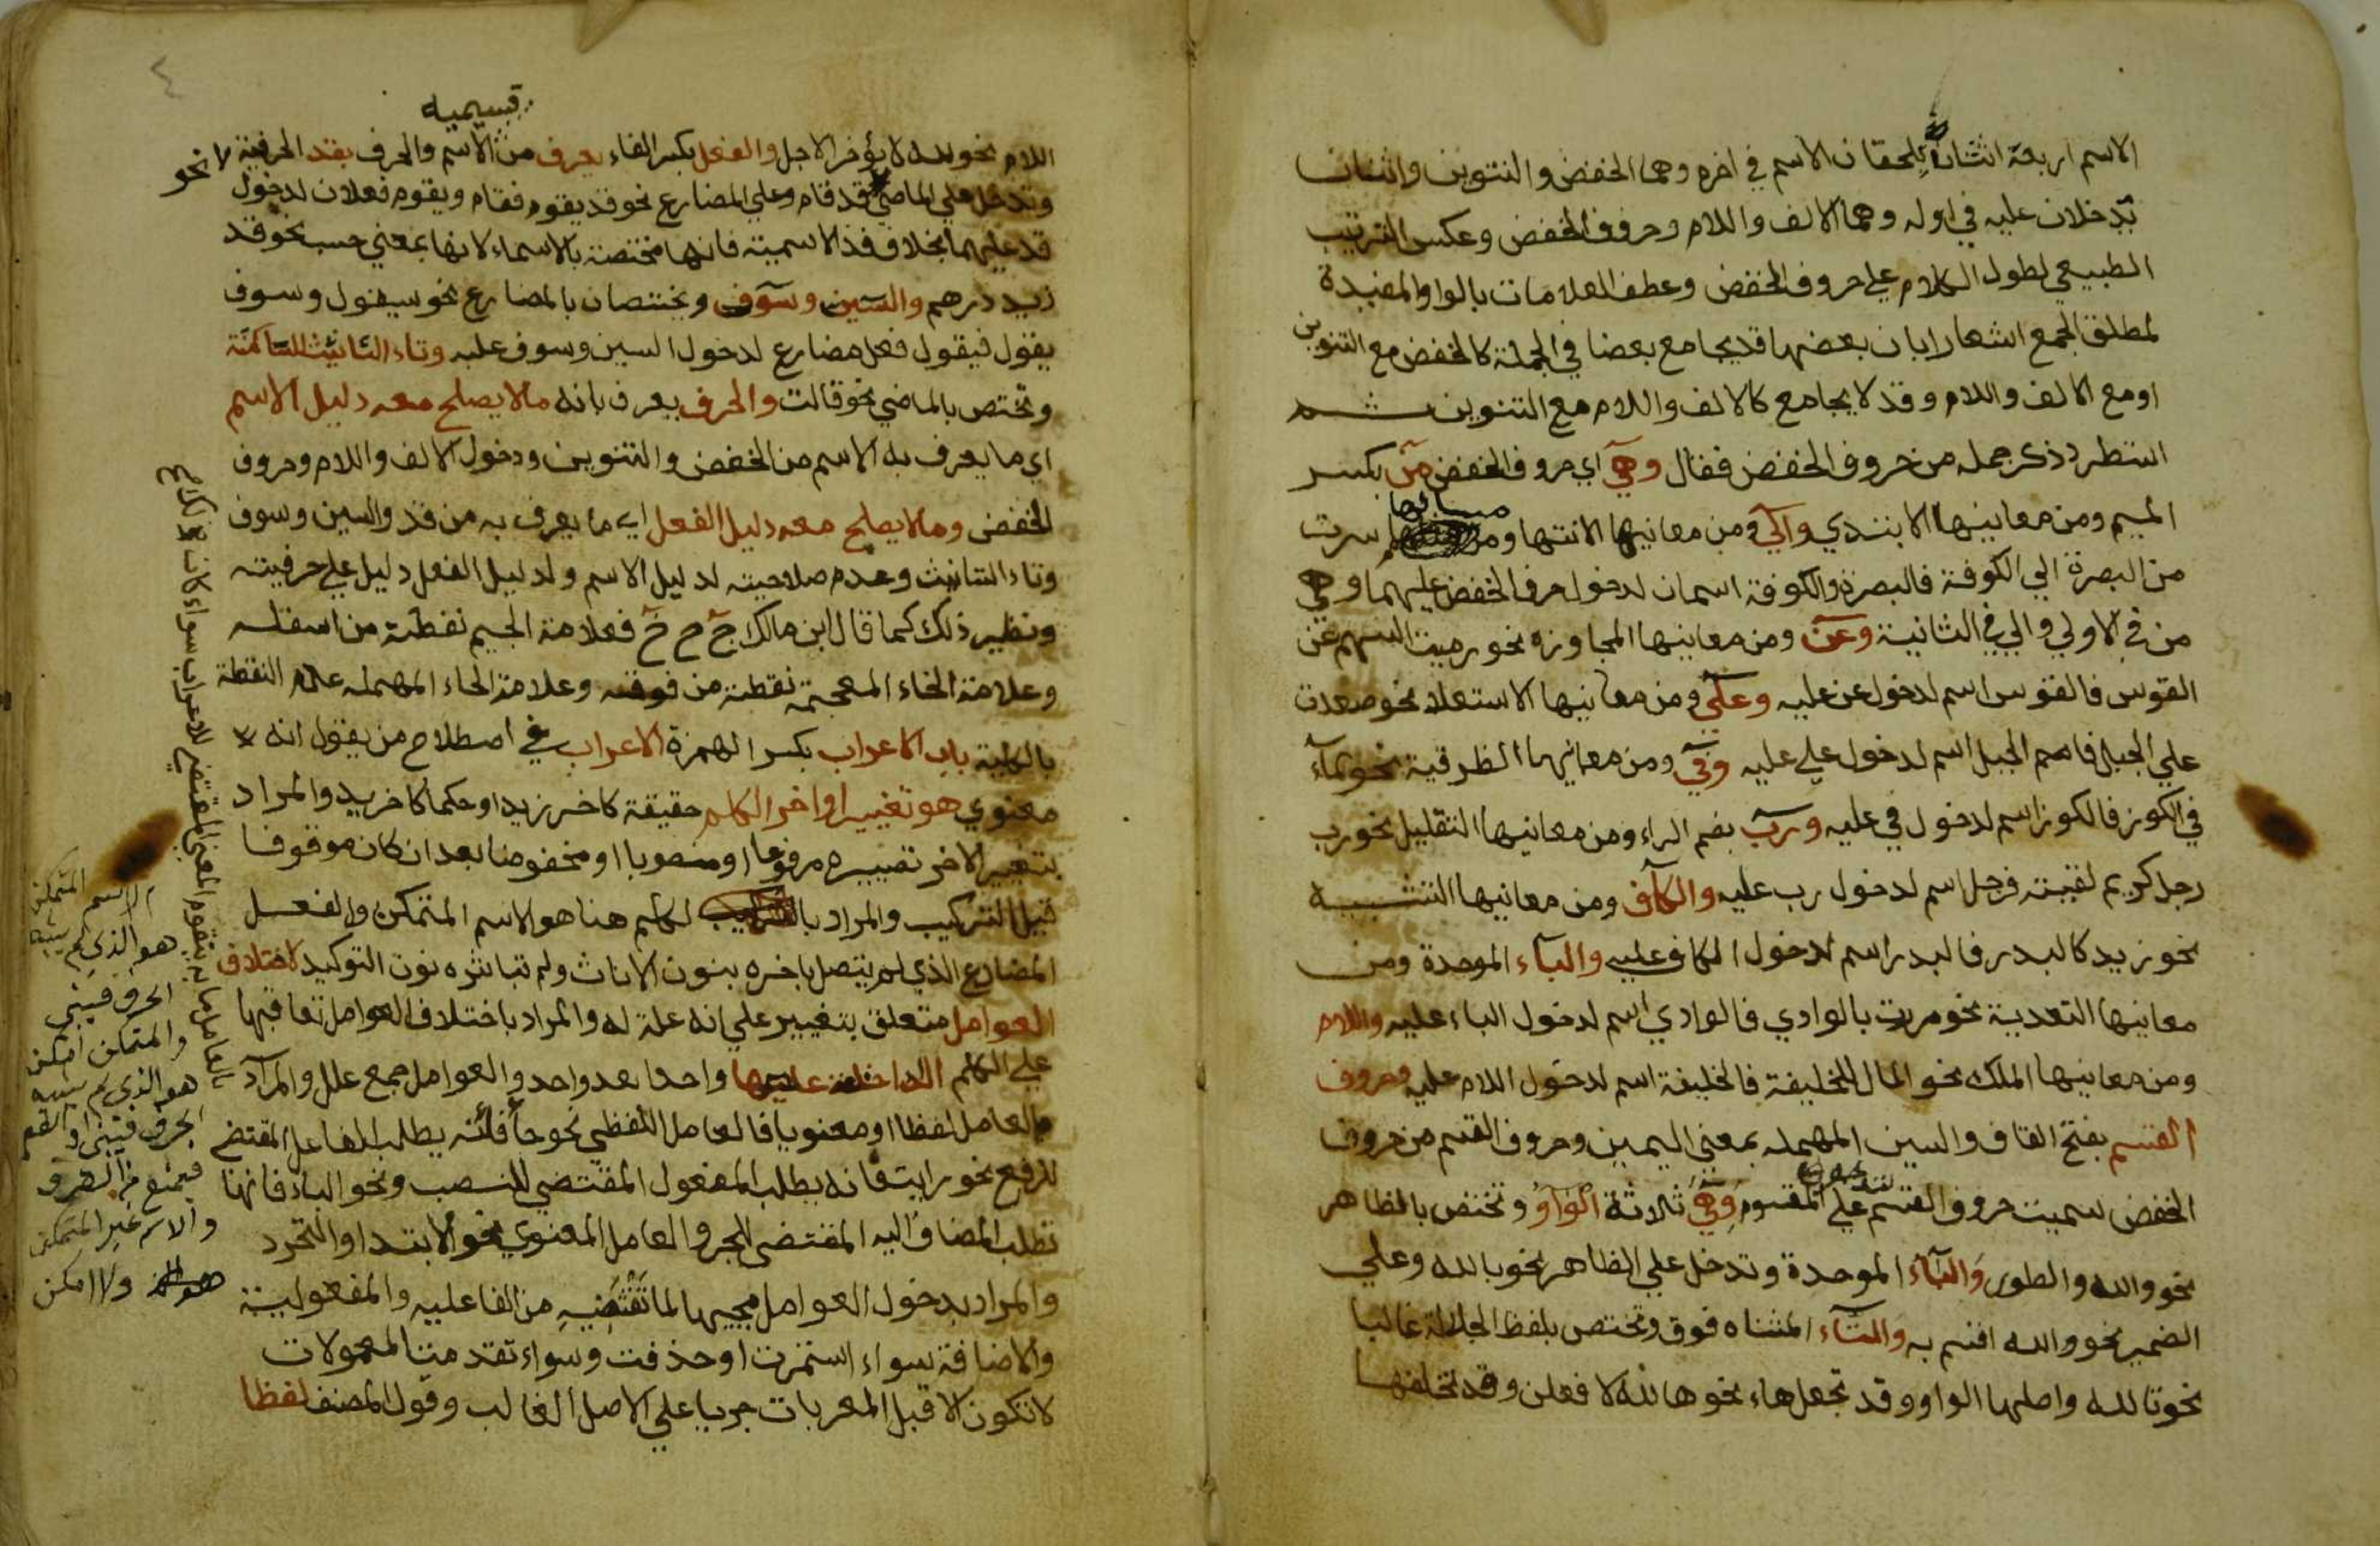 الاسم اربعة اثنان يلحقان الاسم في اخره وهما الخفض والتنوين واثنان
يدخلان عليه في اوله وهما الالف واللام وحروف الخفض وعكس الترتيب
الطبيعي لطول الكلام علي حروف الخفض وعطف العلامات بالواو المفيدة
لمطلق الجمع اشعارا بان بعضها قد يجامع بعضا في الجملة كالخفض مع التنوين
او مع الالف واللام وقد لا يجامع كالالف واللام مع التنوين ثم
استطرد ذكر جمله من حروف الخفض فقال وهي اي حروف الخفض من بكسر
الميم ومن معانيها الابتدي والي ومن معانيها الانتها ومن مسائلها سرت
من البصرة الي الكوفة فالبصرة والكوفة اسمان لدخول حرف الخفض عليهما وهي
من في الاولي والي في الثانية وعن ومن معانيها المجاوزه نحو رميت السهم عن
القوس فالقوس اسم لدخول عن عليه وعلي ومن معانيها الاستعلا نحو صعدت
علي الجبل فاسم الجبل اسم لدخول علي عليه وفي ومن معانيها الظرفية نحو الماء
في الكوز فالكوز اسم لدخول في عليه ورب بضم الراء ومن معانيها التقليل نحو رب
رجل كريم لقيته فرجل اسم لدخول رب عليه والكاف ومن معانيها التشبيه
نحو زيد كالبدر فالبدر اسم لدخول الكاف عليه والباء الموحدة ومن
معانيها التعدية نحو مررت بالوادي فالوادي اسم لدخول الباء عليه واللام
ومن معانيها الملك نحو المال للخليفة فالخليفة اسم لدخول اللام عليه وحروف
القسم بفتح القاف والسين المهمله بمعني اليمين وحروف القسم من حروف
الخفض سميت حروف القسم لدخولها علي المقسوم وهي ثلاثة الواو وتختص بالظاهر
نحو والله والطور والباء الموحدة وتدخل علي الظاهر نحو بالله وعلي
الضمير نحو والله اقسم به والتاء المثناه فوق وتختص بلفظ الجلالة غالبا
نحو تالله واصلها الواو وقد تجعل هاء نحو هالله لافعلن وقد تخلفها
٤
قسيميه
اللام نحو لله لا يؤخر الاجل والفعل بكسر الفاء يعرف من الاسم والحرف بقد الحرفية لا نحو
وتدخل علي الماضي قد قام وعلي المضارع نحو قد يقوم فقام ويقوم فعلان لدخول
قد عليهما بخلاف قد الاسمية فانها مختصة بالاسماء لانها بمعني حسب نحو قد
زيد درهم والسين وسوف ويختصان بالمضارع نحو سيقول وسوف
يقول فيقول فعل مضارع لدخول السين وسوف عليه وتاء التانيث الساكنة
وتختص بالماضي نحو قالت والحرف يعرف بانه ما لا يصلح معه دليل الاسم
اي ما يعرف به الاسم من الخفض والتنوين ودخول الالف واللام وحروف
الخفض وما لا يصلح معه دليل الفعل اي ما يعرف به من قد والسين وسوف
وتاء التانيث وعدم صلاحيته لدليل الاسم ولدليل الفعل دليل علي حرفيته
ونظير ذلك كما قال ابن مالك ج ح خ فعلامة الجيم نقطة من اسفله
وعلامة الخاء المعجمة نقطة من فوقه وعلامة الحاء المهمله عدم النقطة
بالكلية باب الاعراب بكسر الهمزة الاعراب في اصطلاح من يقول انه
معنوي هو تغيير اواخر الكلم حقيقة كاخر زيد او حكما كاخر يد والمراد
بتغيير الاخر تصييره مرفوعا او منصوبا او مخفوضا بعد ان كان موقوفا
قبل التركيب والمراد بالكلم هنا هو الاسم المتمكن والفعل
المضارع الذي لم يتصل باخره بنون الاناث ولم تباشره نون التوكيد لاختلاف
العوامل متعلق بتغيير علي انه علة له والمراد باختلاف العوامل تعاقبها
علي الكلم الداخلة عليها واحدا بعد واحد والعوامل جمع عامل والمراد
بالعامل لفظا او معنويا فالعامل اللفظي نحو جا فانه يطلب الفاعل المقتضي
للرفع نحو رايت فانه يطلب المفعول المقتضي للنصب ونحو الباء فانها
تطلب المضاف اليه المقتضي للجر والعامل المعنوي نحو الابتدا والتجرد
والمراد بدخول العوامل مجيها لما تقتضيه من الفاعليه والمفعولية
والاضافة سواء استمرت او حذفت وسواء تقدمت المعمولات
لا تكون الا قبل المعربات جريا علي الاصل الغالب وقول المصنف لفظا
بالعامل ما به يتقوم المعني المقتضي للاعراب سواء كان
الاسم المتمكن
هو الذي لم يشبه
الحرف فيبني
والمتمكن امكن
هو الذي لم يشبه
الحرف فيبني او الفعل
فيمنع من الصرف
والاسم غير المتمكن
ولا امكن